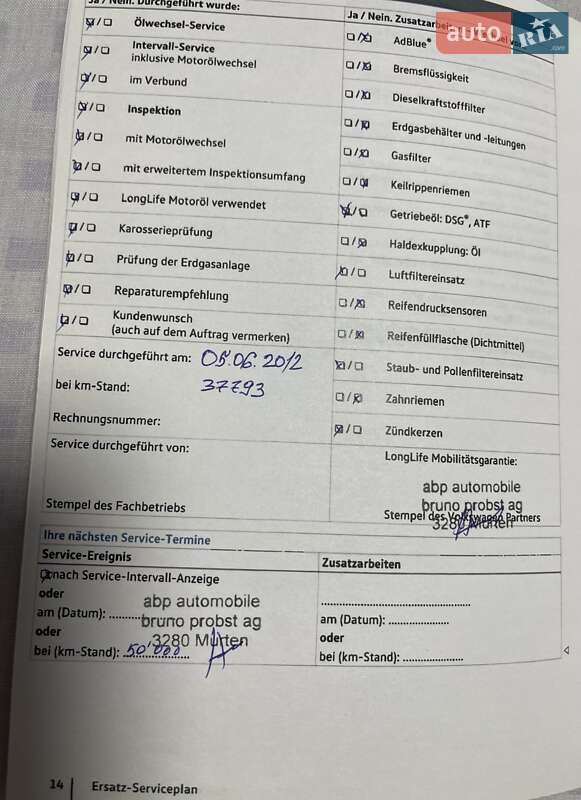 Ja / Nein. Durchgeführt wurde:
Ölwechsel-Service
Intervall-Service
inklusive Motorölwechsel
im Verbund
Inspektion
mit Motorölwechsel
mit erweitertem Inspektionsumfang
LongLife Motoröl verwendet
Karosserieprüfung
Prüfung der Erdgasanlage
Reparaturempfehlung
Kundenwunsch
(auch auf dem Auftrag vermerken)
Service durchgeführt am: 05.06.2012
bei km-Stand: 37793
Rechnungsnummer:
Service durchgeführt von:
Stempel des Fachbetriebs
Ja / Nein. Zusatzarbei
auto RIA .com
AdBlue®
Bremsflüssigkeit
Dieselkraftstofffilter
Erdgasbehälter und -leitungen
Gasfilter
Keilrippenriemen
Getriebeöl: DSG®, ATF
Haldexkupplung: Öl
Luftfiltereinsatz
Reifendrucksensoren
Reifenfüllflasche (Dichtmittel)
Staub- und Pollenfiltereinsatz
Zahnriemen
Zündkerzen
LongLife Mobilitätsgarantie:
abp automobile
bruno probst ag
Stempel des Volkswagen Partners
3280 Murten
Ihre nächsten Service-Termine
Service-Ereignis
nach Service-Intervall-Anzeige
oder
am (Datum):
oder
bei (km-Stand): 50'000
abp automobile
bruno probst ag
3280 Murten
Zusatzarbeiten
am (Datum):
oder
bei (km-Stand):
14 Ersatz-Serviceplan